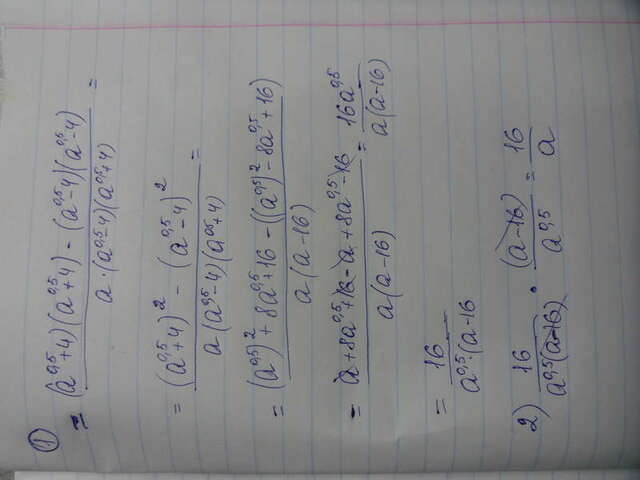 1
= ((a^0,5+4)(a^0,5+4) - (a^0,5-4)(a^0,5-4))/(a·(a^0,5-4)(a^0,5+4)) =
= ((a^0,5+4)^2 - (a^0,5-4)^2)/(a(a^0,5-4)(a^0,5+4)) =
= ((a^0,5)^2 + 8a^0,5+16 - ((a^0,5)^2 - 8a^0,5 + 16))/(a(a-16))
= (a + 8a^0,5 + 16 - a + 8a^0,5 - 16)/(a(a-16)) = 16a^0,5/(a(a-16))
= 16/(a^0,5·(a-16
2) 16/(a^0,5(a-16)) · (a-16)/a^0,5 = 16/a